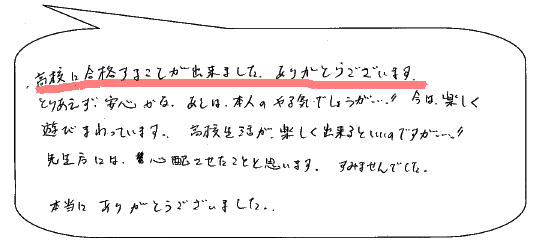 高校に合格することが出来ました。ありがとうございます。
とりあえず安心かな。あとは、本人のやる気でしょうが…!! 今は、楽しく
遊びまわっています。 高校生活が、楽しく出来るといいのですが…!!
先生方には、心配させたことと思います。 すみませんでした。
本当に ありがとうございました。